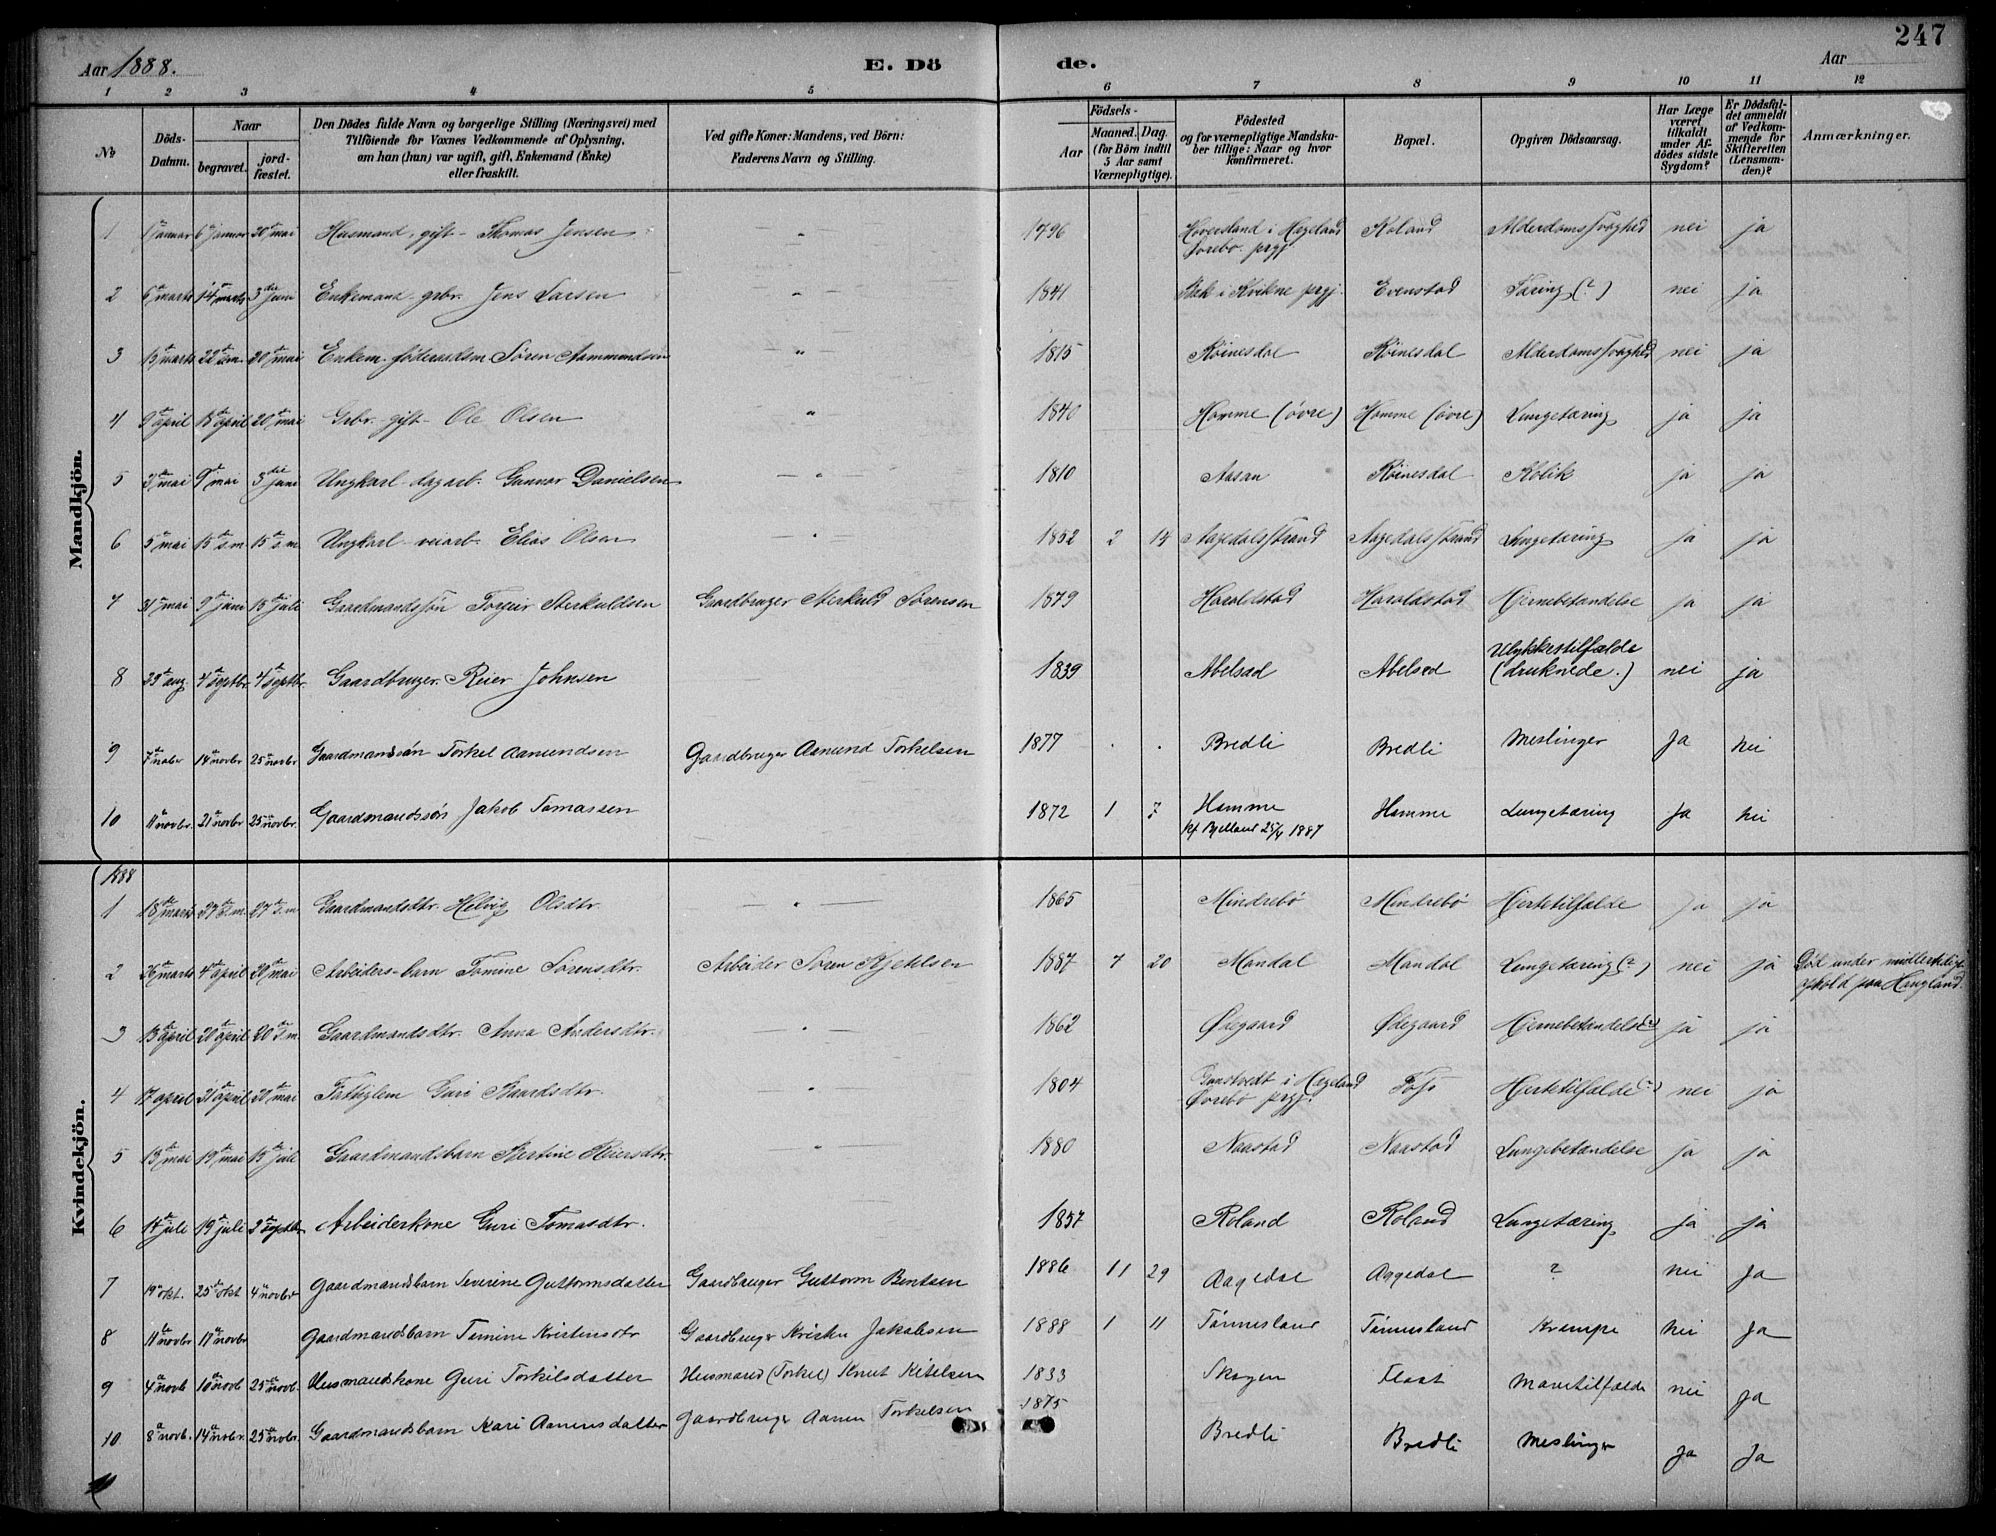 247
Aar 1888. E. Dö de. Aar
1 2 3 4 5 6 7 8 9 10 11 12
№ Döds-Datum. Naar begravet. jordfæstet. Den Dödes fulde Navn og borgerlige Stilling (Næringsvei) med Tilföiende for Voxnes Vedkommende af Oplysning, om han (hun) var ugift, gift, Enkemand (Enke) eller fraskilt. Ved gifte Koner: Mandens, ved Börn: Faderens Navn og Stilling. Födsels- Aar Maaned. Dag. (for Börn indtil 5 Aar samt Værnepligtige). Födested og for værnepligtige Mandskaber tillige: Naar og hvor konfirmeret. Bopæl. Opgiven Dödsaarsag. Har Læge været tilkaldt under Afdödes sidste Sygdom? Er Dödsfaldet anmeldt af Vedkommende for Skifteretten (Lensmanden)? Anmærkninger.
Mandkjön.
1 januar 6 januar 20 mai Husmand, gift - Thomas Jensen " 1796 Hoversland i Hægeland Øvrebø prgj. Roland Alderdomssvaghed nei ja
2 6 marts 14 marts 3die juni Enkemand grbr. Jens Larsen " 1841 i Kvikne prgj. Evenstad Tæring (?) nei ja
3 13 marts 22 s.m. 20 mai Enkem. föderaadsm. Sören Aammundsen " 1815 Röinesdal Röinesdal Alderdomssvaghed nei ja
4 9 april 18 april 20 mai Grbr. gift - Ole Olsen " 1840 Homme (övre) Homme (övre) Lungetæring ja ja
5 3 mai 9 mai 3die juni Ungkarl - dagarb. Gunnar Danielsen " 1810 Aasan Röinesdal Kolik ja ja
6 5 mai 15 s.m. 15 s.m. Ungkarl - veiarb. Elias Olsen " 1852 2 14 Aagedalsstrand Aagedalsstrand Lungetæring ja ja
7 31 mai 9 juni 15 juli Gaardmandssön Torjeir Sterkuldsen Gaardbruger Sterkuld Sörensen 1879 Haraldstad Haraldstad Hjernebetændelse ja ja
8 29 aug 4 septbr. 4 septbr. Gaardbruger Reier Johnsen 1839 Abelsæd Abelsæd Ulykkestilfælde (druknede.) nei ja
9 7 nober 14 novbr 25 novbr Gaardmandssön Torkel Aamundsen Gaardbruger Aamund Torkelsen 1877 . . Bredli Bredli Meslinger Ja nei
10 11 novbr. 21 novbr 25 novbr. Gaardmandssön Jakob Tomassen 1872 1 7 Homme kf Bjelland 25/4 1887 Homme Lungetæring Ja nei
Kvindekjön.
1888
1 18 marts 27 s.m. 27 s.m. Gaardmandsdtr. Helvig Olsdtr. " 1865 Mindrebö Mindrebö Hjertetilfælde ja ja
2 26 marts 4 april 20 mai Arbeiders-barn Tomine Sörensdtr. Arbeider Sören Kjetilsen 1887 7 20 Mandal Mandal Lungetæring (?) nei ja Död under midlertidigt ophold paa Haugland.
3 13 april 20 april 20 s.m. Gaardmandsdtr. Anna Andersdtr. " 1862 Ødegaard Ødegaard Hjernebetændelse(?) ja ja
4 17 april 21 april 20 mai Fattiglem Guri Baardsdtr. " 1804 Gunstvedt i Hægeland Øvrebö prgj. Foss Hjertetilfælde(?) nei ja
5 13 mai 19 mai 15 juli Gaardmandsbarn Bertine Reiersdtr. " 1880 Naastad Naastad Lungebetændelse ja ja
6 14 juli 19 juli 2 septbr Arbeiderkone Guri Tomasdtr. 1857 Roland Roland Lungetæring ja ja
7 19 okt. 25 okt 4 novbr Gaardmandsbarn Severine Guttormsdatter Gaardbruger Guttorm Bentsen 1886 11 29 Aagedal Aagedal ? nei Ja
8 11 novbr 11 novbr Gaardmandsbarn Tomine Kristensdtr Gaardbruger Kristen Jakobsen 1888 1 11 Tönnesland Tönnesland Krampe Nei Ja
9 4 novb 10 novb 25 novb. Husmandskone Guri Torkilsdatter Husmand (Torkel) Knut Kitelsen 1833 Skogen Flaat Mavetilfælde nei Ja
10 8 novb. 14 novbr. 25 novbr. Gaardmandsbarn Kari Aanensdatter Gaardbruger Aanen Torkelsen 1875 Bredli Bredli Meslinger Ja Ja